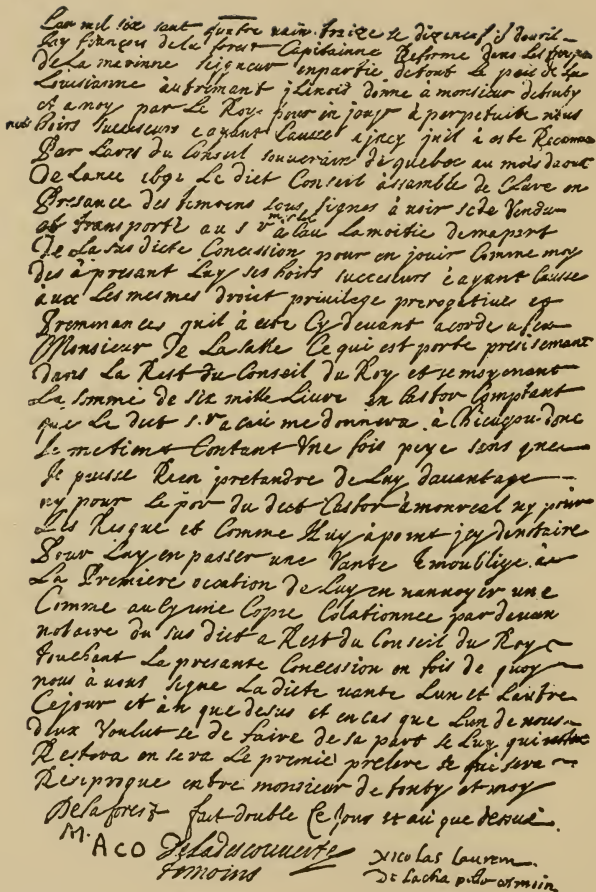 Lan mil six sant quatre vain traize le dizeneuf is davril
Jay françois de la forest Capitainne Reforme dans les troupe
De La marinne seigneur en partie de tout Le pais de La
Louisianne autremant jlinois donne à monsieur de tonty
et a moy par Le Roy pour en jouyr à perpetuite nous
nos hoirs successeurs e ayant Causse aincy quil à este Recomme
Par Larest du Conseil souverain de quebec au mois daout
De Lance 1691 Le dict Conseil assamble de Clare en
Presance des temoins sous signes avoir cede Vendu
et transporte au s r michel acau La moitie de ma part
De La sus dicte Concession pour en jouir Comme moy
des à presant Luy ses hoirs successeurs e ayant causse
aux Les mesmes droict privilege prerogatives et
Preminances quil à este Cy devant acorde a feu
Monsieur De La salle Ce qui est porte presisemant
dans La Rest du Conseil du Roy et se moyenant
La somme de six mille Livre en Castor Comptant
que Le dict s. r acau me donnera à Chicagou donc
Je me tiens Contant Une fois peye sans que
Je puisse Rien pretandre de Luy davantage
ny pour Le por du dict Castor à monreal ny pour
Les Resque et Comme Il ny à point jcy de notaire
Pour Luy en passer une Vante Je moublige à
La Premiere occation de Luy en nanvoyer une
Comme aucy une Copie Colationnee par devan
notaire du sus dict a Rest du Conseil du Roy
touchant La presante Concession en fois de quoy
nous à vons signe La dicte vante Lun et Lautre
Ce jour et an que desus et en cas que Lun de nous
deux Voulut se de faire de sa part se Luy qui
Restera en sera Le premier prefere se qui sera
Resiproque entre monsieur de tonty et moy
De la forest fait double Ce Jour et an que dessus.
M. ACO De La descouverte Nicolas Laurens
temoins De Lacha pelle temoin